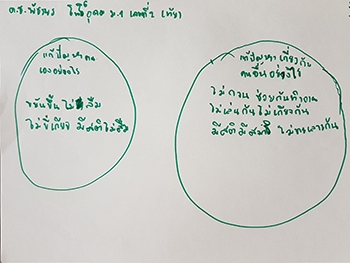 ด.ช. พัชรพร โนรีกุดอ ม.1 เลขที่2 (เทีย)
แก้ปัญหาตน
เองอย่างไร
ขยันขึ้น ไม่ลืม
ไม่ขี้เกียจ มีสติไม่ลืม
แก้ปัญหาเกี่ยวกับ
คนอื่นอย่างไร
ไม่กวน ช่วยกันทำงาน
ไม่เล่นกันไม่เกี่ยงกัน
มีสติ มีสมาธิ ไม่ทะเลาะกัน